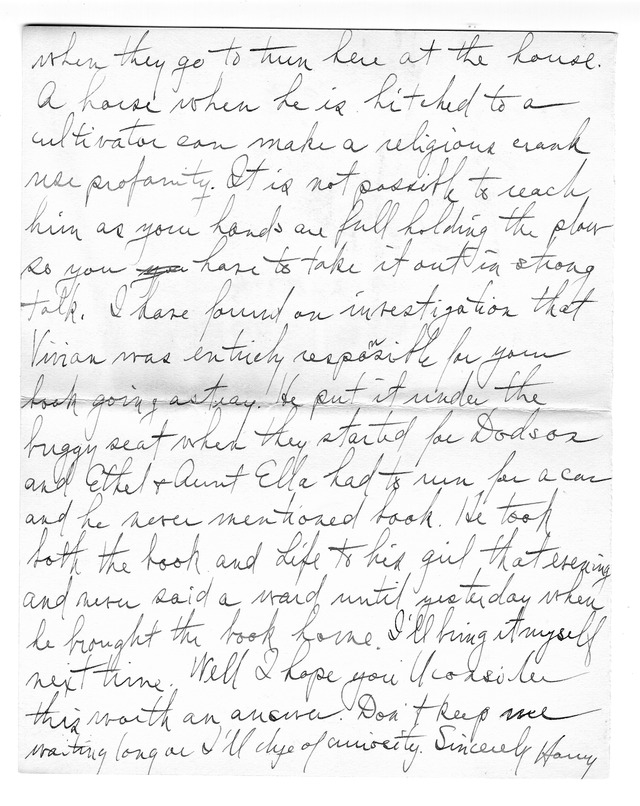 when they go to turn here at the house.
A horse when he is hitched to a
cultivator can make a religious crank
use profanity. It is not possible to reach
him as your hands are full holding the plow
so you have to take it out in strong
talk. I have found on investigation that
Vivian was entirely responsible for your
book going astray. He put it under the
buggy seat when they started for Dodson
and Ethel & Aunt Ella had to run for a car
and he never mentioned book. He took
both the book and Life to his girl that evening
and never said a word until yesterday when
he brought the book home. I'll bring it myself
next time. Well I hope you'll consider
this worth an answer. Don't keep me
waiting long or I'll dye of curiosity. Sincerely Harry